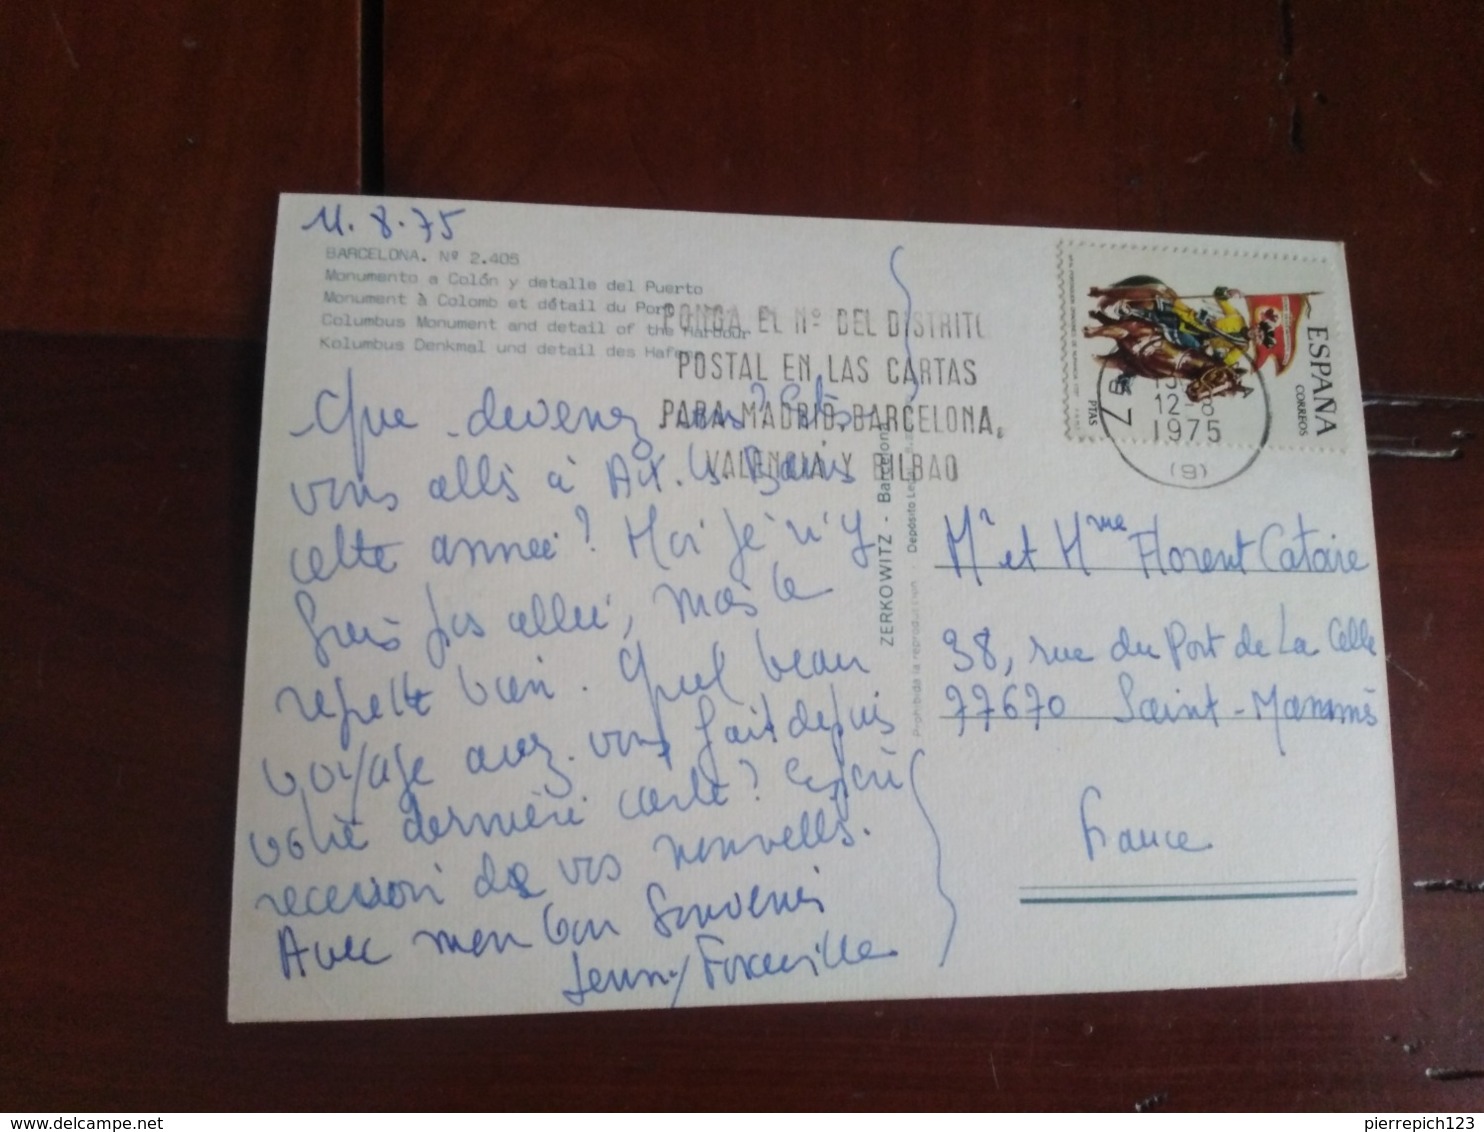 11.8.75
BARCELONA. Nº 2.405
Monumento a Colón y detalle del Puerto
Monument à Colomb et détail du Port
Columbus Monument and detail of the Harbour
Kolumbus Denkmal und detail des Hafens
PONGA EL Nº DEL DISTRITO
POSTAL EN LAS CARTAS
PARA MADRID, BARCELONA,
VALENCIA Y BILBAO
ESPAÑA
CORREOS
7 PTAS
12-
1975
(9)
Que devenez vous? Etes
vous allés à Aix. ls. Bains
cette année? Moi je n'y
suis pas allée, mais le
regrette bien. Quel beau
voyage avez-vous fait depuis
votre dernière carte?
recevoir de vos nouvelles.
Avec mon bon Souvenir
Jenny
ZERKOWITZ - Barcelona
Prohibida la reproduccion - Depósito
Mr et Mme Florent Cataire
38, rue du Port de La Celle
77670 Saint-Mammès
France
pierrepich123